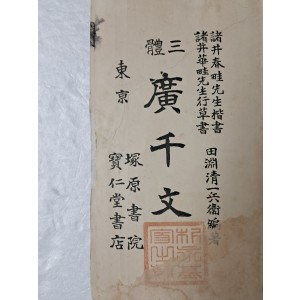 諸井春畦先生楷書
諸井華畦先生行草書
田淵清一兵衛編著
三體
廣千文
東京
塚原書院
寶仁堂書店